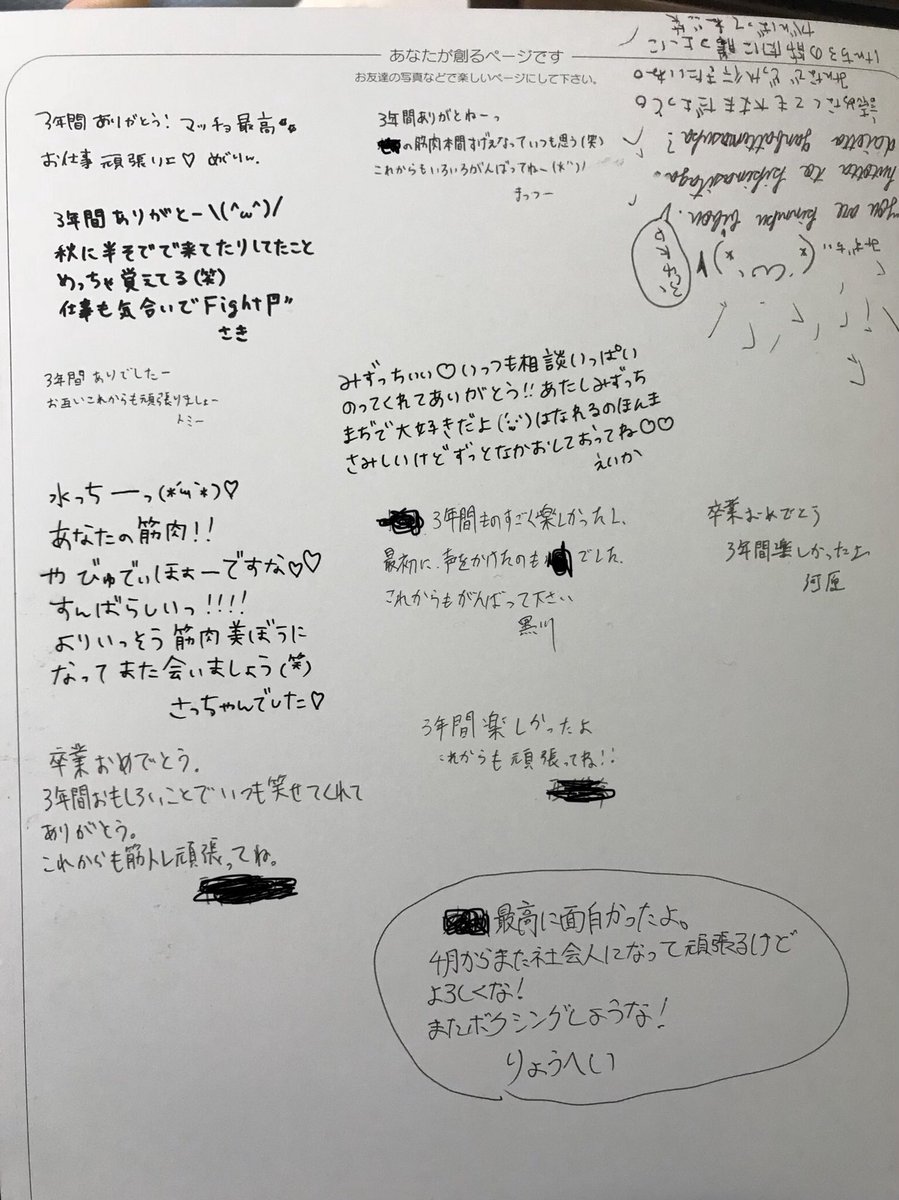 あなたが創るページです
お友達の写真などで楽しいページにして下さい。
3年間ありがとう！マッチョ最高
お仕事頑張りぇ♡ めがりん
3年間ありがとねーっ
の筋肉本間すげえなっていつも思う(笑)
これからもいろいろがんばってねー
まっつー
3年間ありがとー\(^ω^)/
秋に半そでで来てたりしてたこと
めっちゃ覚えてる(笑)
仕事も気合いでFight
さき
3年間ありでしたー
お互いこれからも頑張りましょー
トミー
みずっちぃぃ♡いっつも相談いっぱい
のってくれてありがとう!!あたしみずっち
まぢで大好きだよ はなれるのほんま
さみしいけどずっとなかおしておってね♡♡
えいか
水っちーっ ♡
あなたの筋肉!!
や びゅでぃほぉーですな♡♡
すんばらしいっ!!!!
よりいっそう筋肉美ぼうに
なってまた会いましょう(笑)
さっちゃんでした♡
3年間ものすごく楽しかったし、
最初に声をかけたのも でした。
これからもがんばって下さい
黒川
卒業おめでとう
3年間楽しかったよ
3年間楽しかったよ
これからも頑張ってね!!
卒業おめでとう。
3年間おもしろいことでいつも笑せてくれて
ありがとう。
これからも筋トレ頑張ってね。
最高に面白かったよ。
4月からまた社会人になって頑張るけど
よろしくな！
またボクシングしような！
りょうへい
you are kinniku
hutotta to kikimasitaga.
daietto ganbattemasuka?
読めなくても大丈夫だよっ